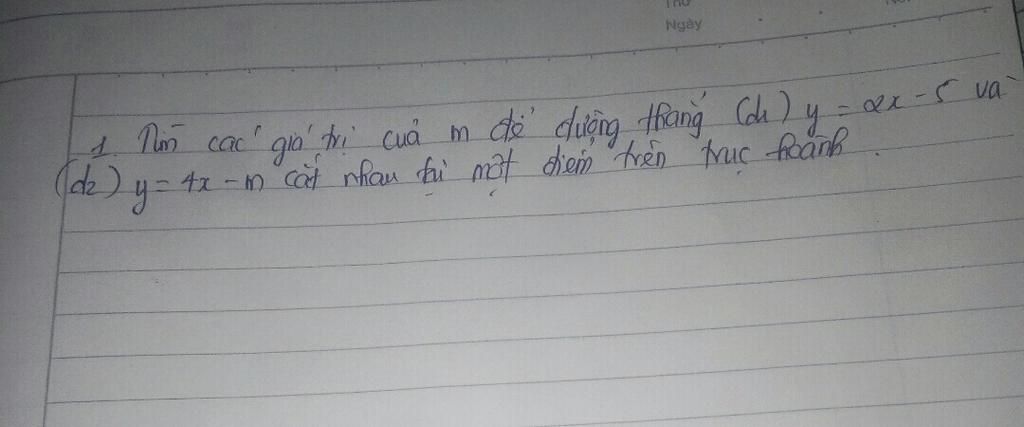 Thứ
Ngày
1. Tìm các giá trị của m để đường thẳng (d1) y = 2x - 5 và
(d2) y = 4x - m cắt nhau tại một điểm trên trục hoành.